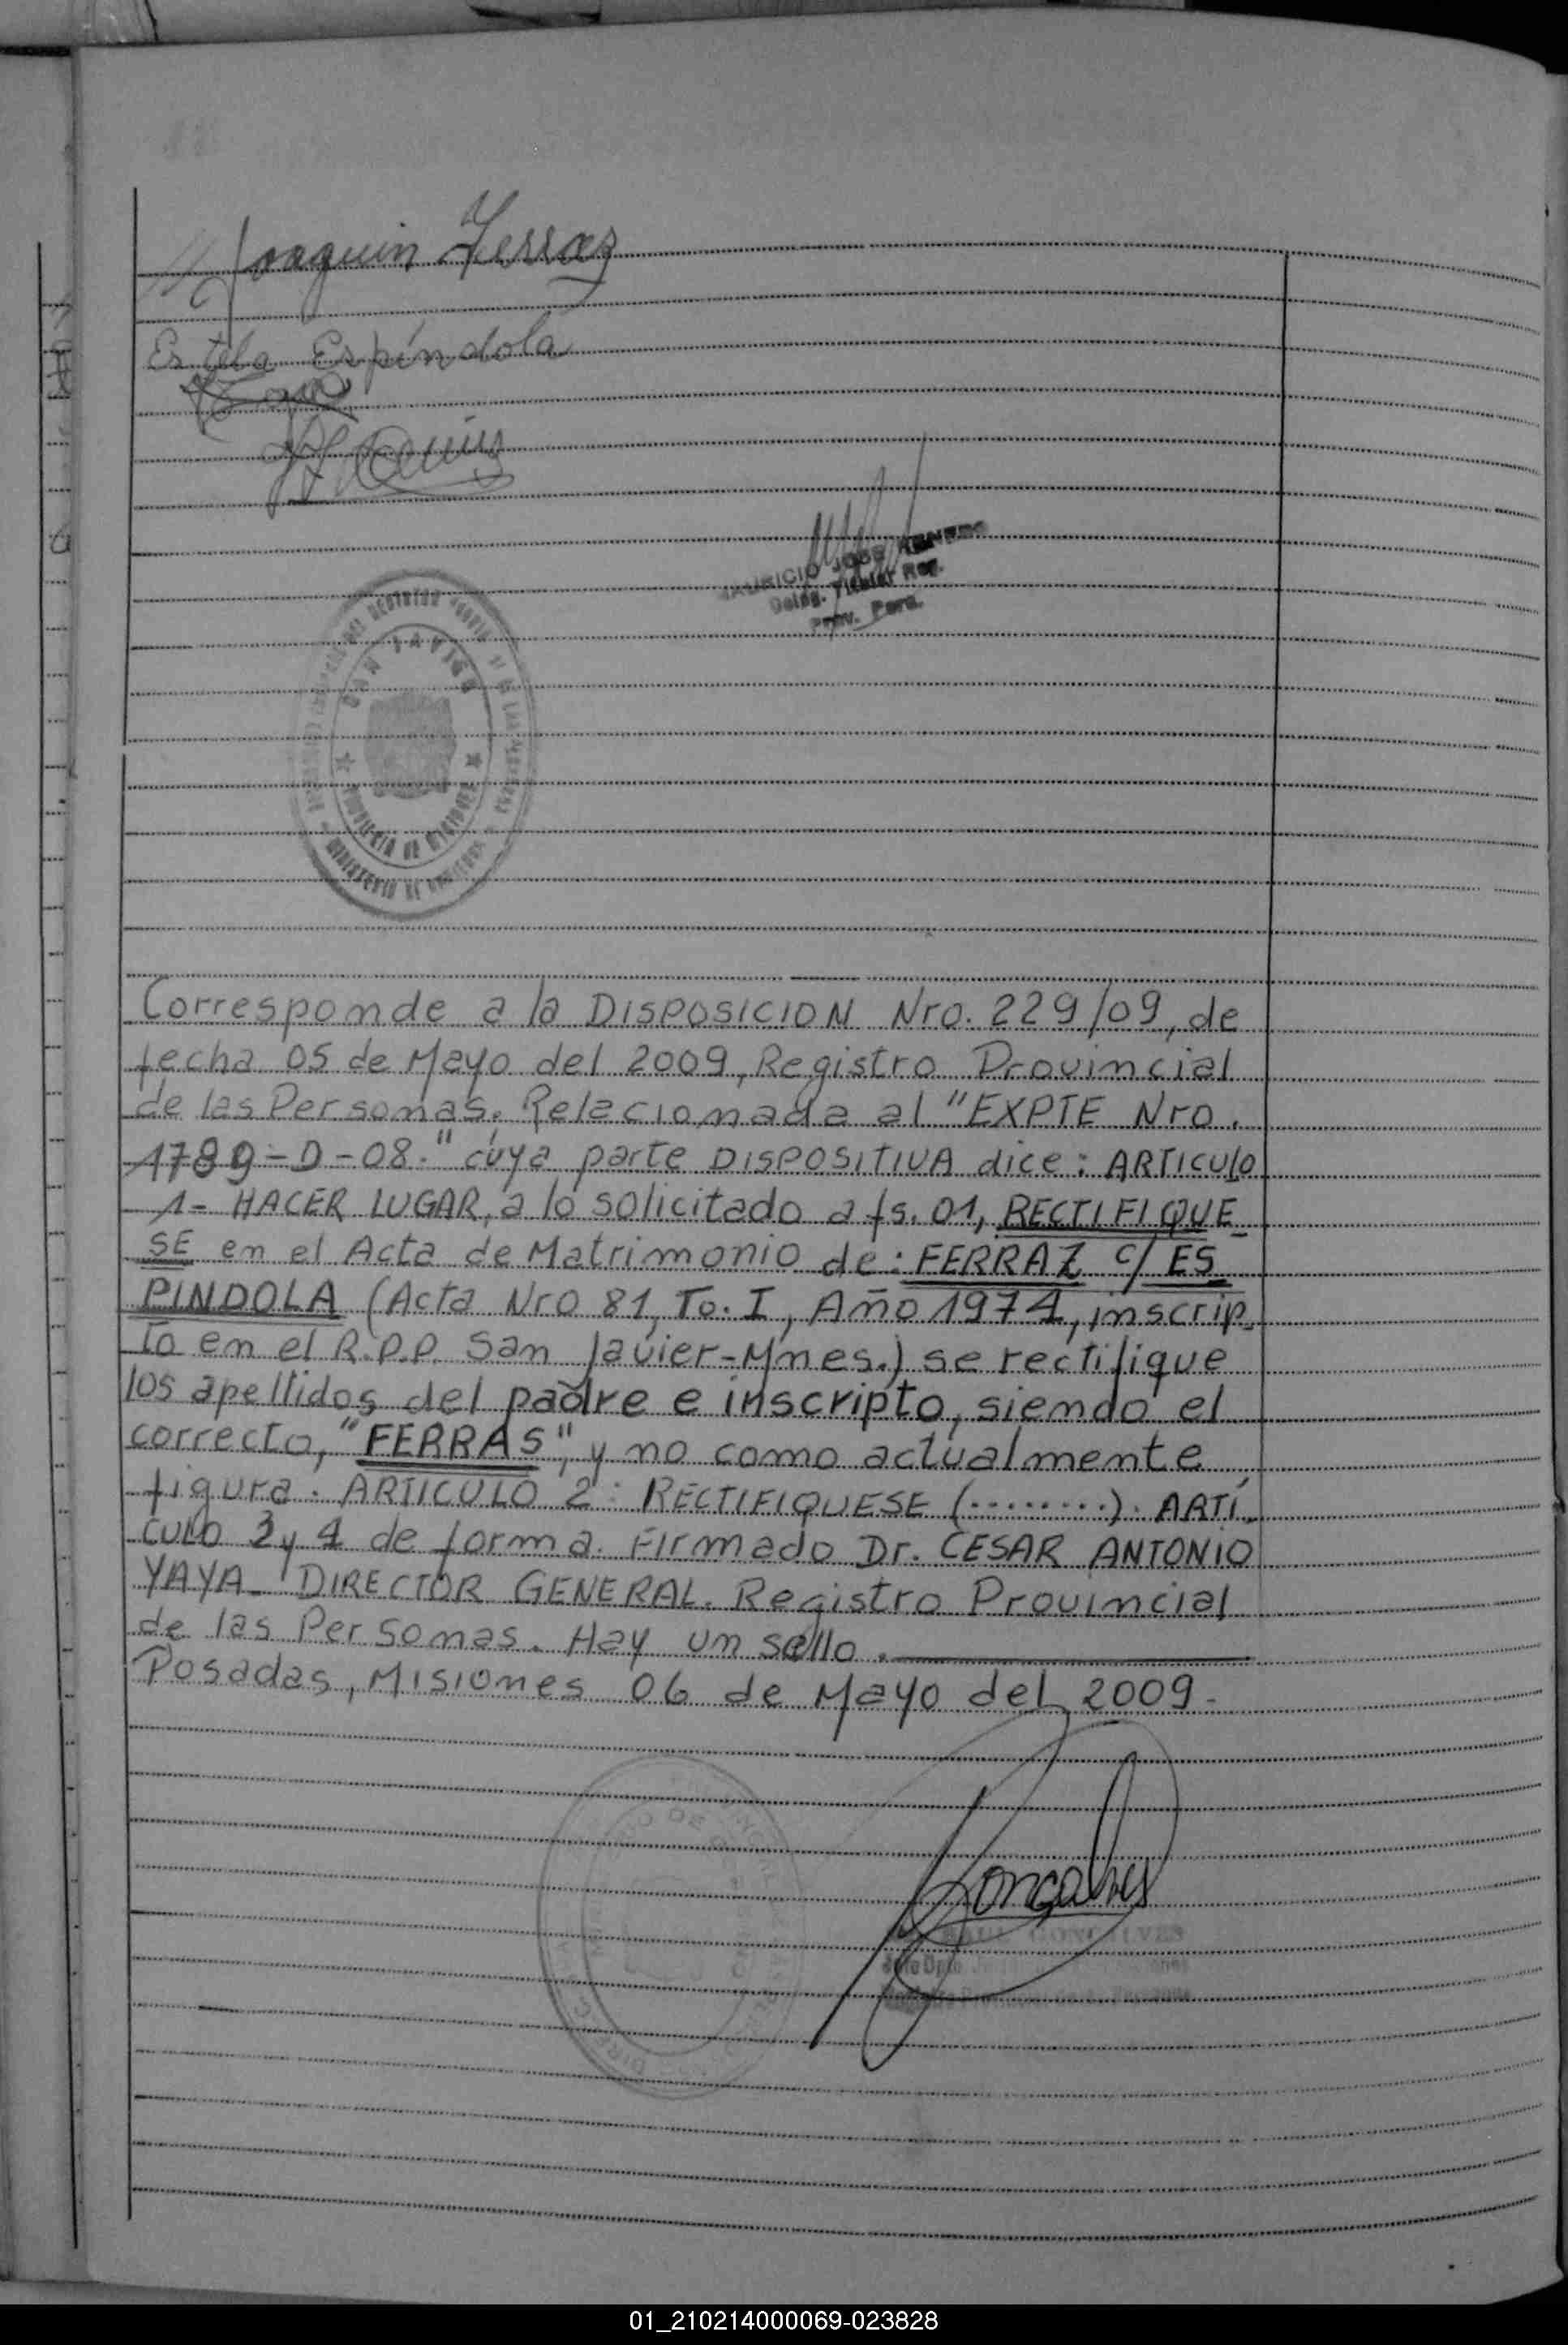 Joaquin Ferraz
Estela Espíndola
MAURICIO JOSE
Deleg. Titular Reg.
Prov. Pers.
SAN JAVIER
PROVINCIA DE MISIONES
MINISTERIO DE
Corresponde a la DISPOSICION Nro. 229/09, de
fecha 05 de Mayo del 2009, Registro Provincial
de las Personas. Relacionada al "EXPTE Nro.
1789-D-08." cuya parte DISPOSITIVA dice: ARTICULO
1- HACER LUGAR, a lo solicitado a fs. 01, RECTIFIQUE_
SE en el Acta de Matrimonio de: FERRAZ c/ ES_
PINDOLA (Acta Nro 81, To. I, Año 1974, inscrip_
to en el R.P.P. San Javier-Mnes.) se rectifique
los apellidos del padre e inscripto, siendo el
correcto, "FERRAS", y no como actualmente
figura. ARTICULO 2: RECTIFIQUESE (.........). ARTÍ_
CULO 3 y 4 de forma. Firmado Dr. CESAR ANTONIO
YAYA- DIRECTOR GENERAL. Registro Provincial
de las Personas. Hay un sello.
Posadas, Misiones 06 de Mayo del 2009-
Gonçalves
RAUL GONCALVES
Jefe Dpto.
01_210214000069-023828